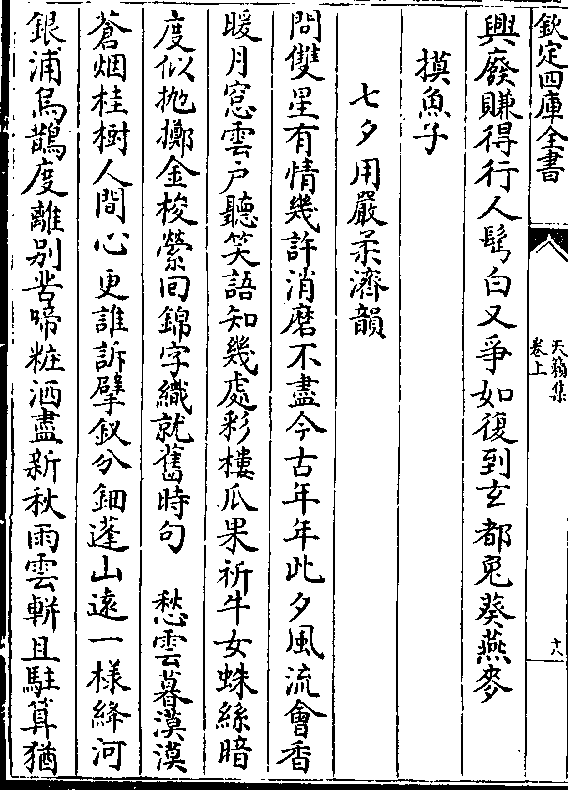 欽定四庫全書
天籟集
卷上
十八
興廢賺得行人鬂白又爭如復到玄都兎葵燕麥
摸魚子
七夕用嚴柔濟韻
問雙星有情幾許消磨不盡今古年年此夕風流會香
暖月窓雲戸聽笑語知幾處彩樓瓜果祈牛女蛛絲暗
度似抛擲金梭縈回錦字織就舊時句　愁雲暮漠漠
蒼烟桂樹人間心更誰訴擘釵分鈿蓬山遠一様絳河
銀浦烏鵲度離别苦啼粧洒盡新秋雨雲軿且駐算猶